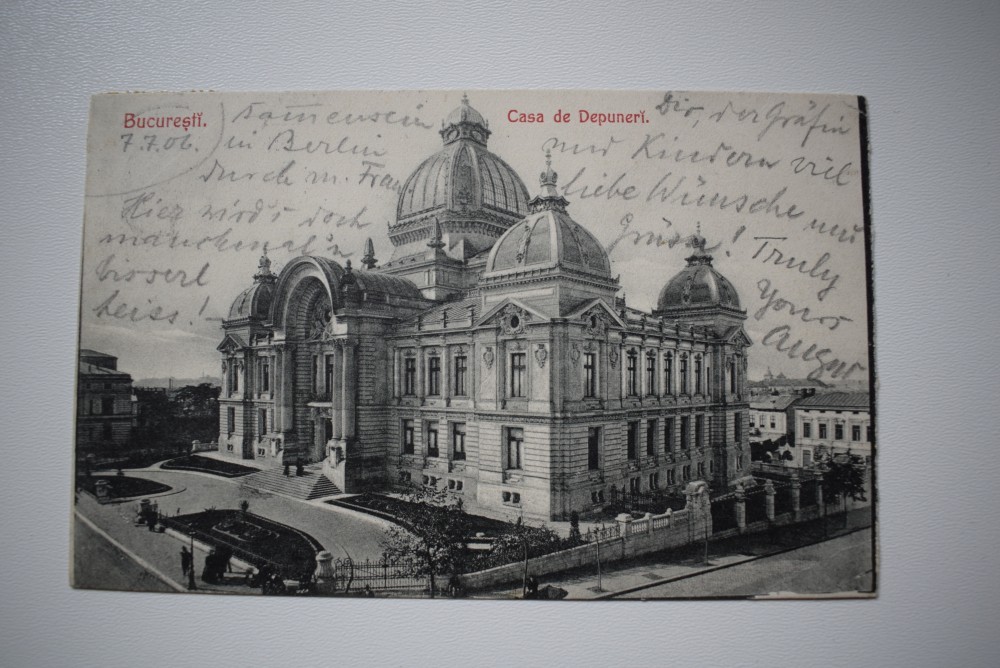 Bucureștĭ.
Casa de Depunerĭ.
7.7.06.
in Berlin
durch m. Frau
Hier wird's doch
manchmal'n
bisserl
heiss!
Dir, der Gräfin
und Kindern viel
liebe Wünsche und
Grüsse!
Truly
Yours